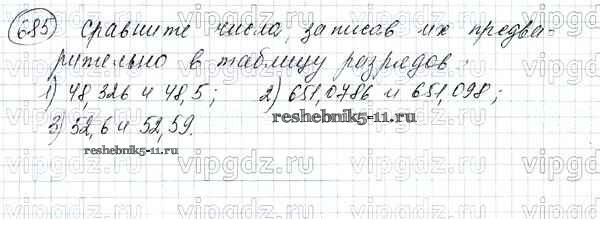 685) Сравните числа, записав их предва-
рительно в таблицу разрядов:
1) 48,326 и 48,5; 2) 651,0786 и 651,098;
3) 52,6 и 52,59.
reshebnik5-11.ru
reshebnik5-11.ru
vipgdz.ru vipgdz.ru vipgdz.ru vipgdz.ru